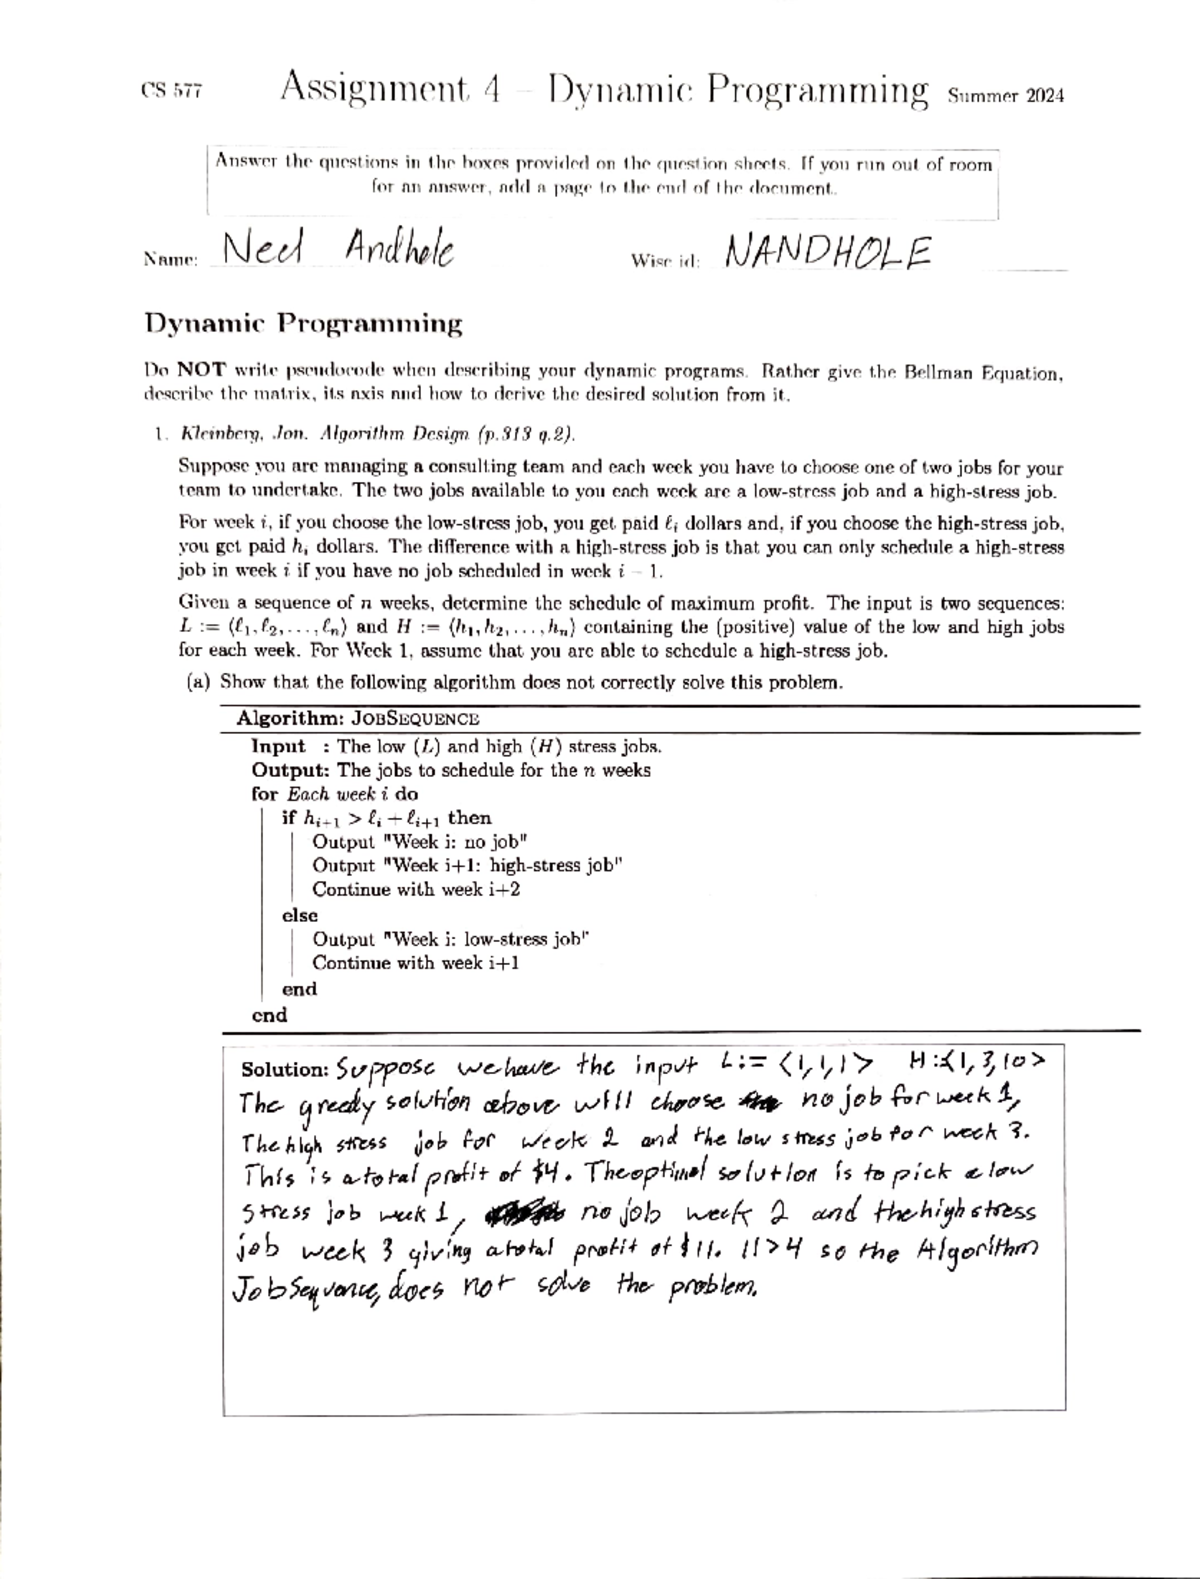 CS 577 Assignment 4 – Dynamic Programming Summer 2024
Answer the questions in the boxes provided on the question sheets. If you run out of room
for an answer, add a page to the end of the document.
Name: Neel Andhole Wisc id: NANDHOLE
Dynamic Programming
Do NOT write pseudocode when describing your dynamic programs. Rather give the Bellman Equation,
describe the matrix, its axis and how to derive the desired solution from it.
1. Kleinberg, Jon. Algorithm Design (p.313 q.2).
Suppose you are managing a consulting team and each week you have to choose one of two jobs for your
team to undertake. The two jobs available to you each week are a low-stress job and a high-stress job.
For week i, if you choose the low-stress job, you get paid ℓᵢ dollars and, if you choose the high-stress job,
you get paid hᵢ dollars. The difference with a high-stress job is that you can only schedule a high-stress
job in week i if you have no job scheduled in week i − 1.
Given a sequence of n weeks, determine the schedule of maximum profit. The input is two sequences:
L := ⟨ℓ₁, ℓ₂, . . . , ℓₙ⟩ and H := ⟨h₁, h₂, . . . , hₙ⟩ containing the (positive) value of the low and high jobs
for each week. For Week 1, assume that you are able to schedule a high-stress job.
(a) Show that the following algorithm does not correctly solve this problem.
Algorithm: JOBSEQUENCE
Input : The low (L) and high (H) stress jobs.
Output: The jobs to schedule for the n weeks
for Each week i do
if hᵢ₊₁ > ℓᵢ + ℓᵢ₊₁ then
Output "Week i: no job"
Output "Week i+1: high-stress job"
Continue with week i+2
else
Output "Week i: low-stress job"
Continue with week i+1
end
end
Solution: Suppose we have the input L:= ⟨1,1,1⟩ H:⟨1,3,10⟩
The greedy solution above will choose no job for week 1,
The high stress job for week 2 and the low stress job for week 3.
This is a total profit of $4. The optimal solution is to pick a low
stress job week 1, no job week 2 and the high stress
job week 3 giving a total profit of $11. 11>4 so the Algorithm
JobSequence, does not solve the problem.